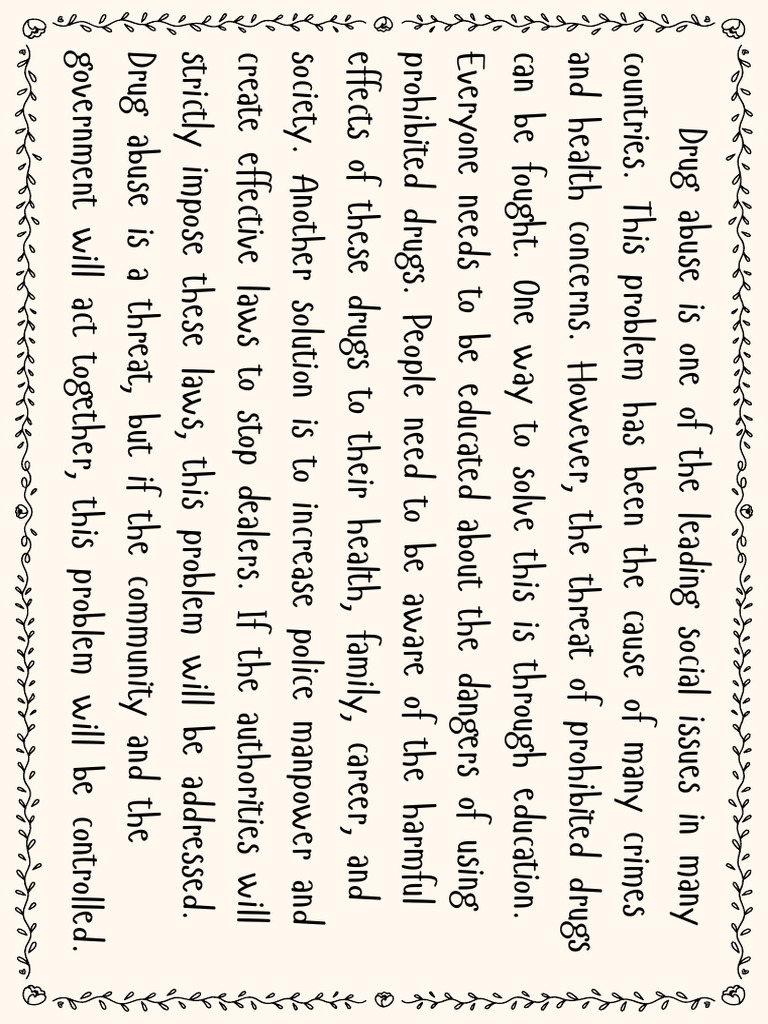 Drug abuse is one of the leading social issues in many
countries. This problem has been the cause of many crimes
and health concerns. However, the threat of prohibited drugs
can be fought. One way to solve this is through education.
Everyone needs to be educated about the dangers of using
prohibited drugs. People need to be aware of the harmful
effects of these drugs to their health, family, career, and
society. Another solution is to increase police manpower and
create effective laws to stop dealers. If the authorities will
strictly impose these laws, this problem will be addressed.
Drug abuse is a threat, but if the community and the
government will act together, this problem will be controlled.